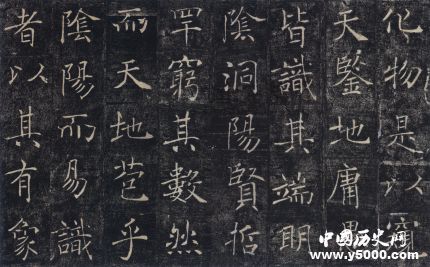 化物是以窺
天鑒地庸愚
皆識其端明
陰洞陽賢哲
罕窮其數然
而天地苞乎
陰陽而易識
者以其有象
中国历史网
www.y5000.com